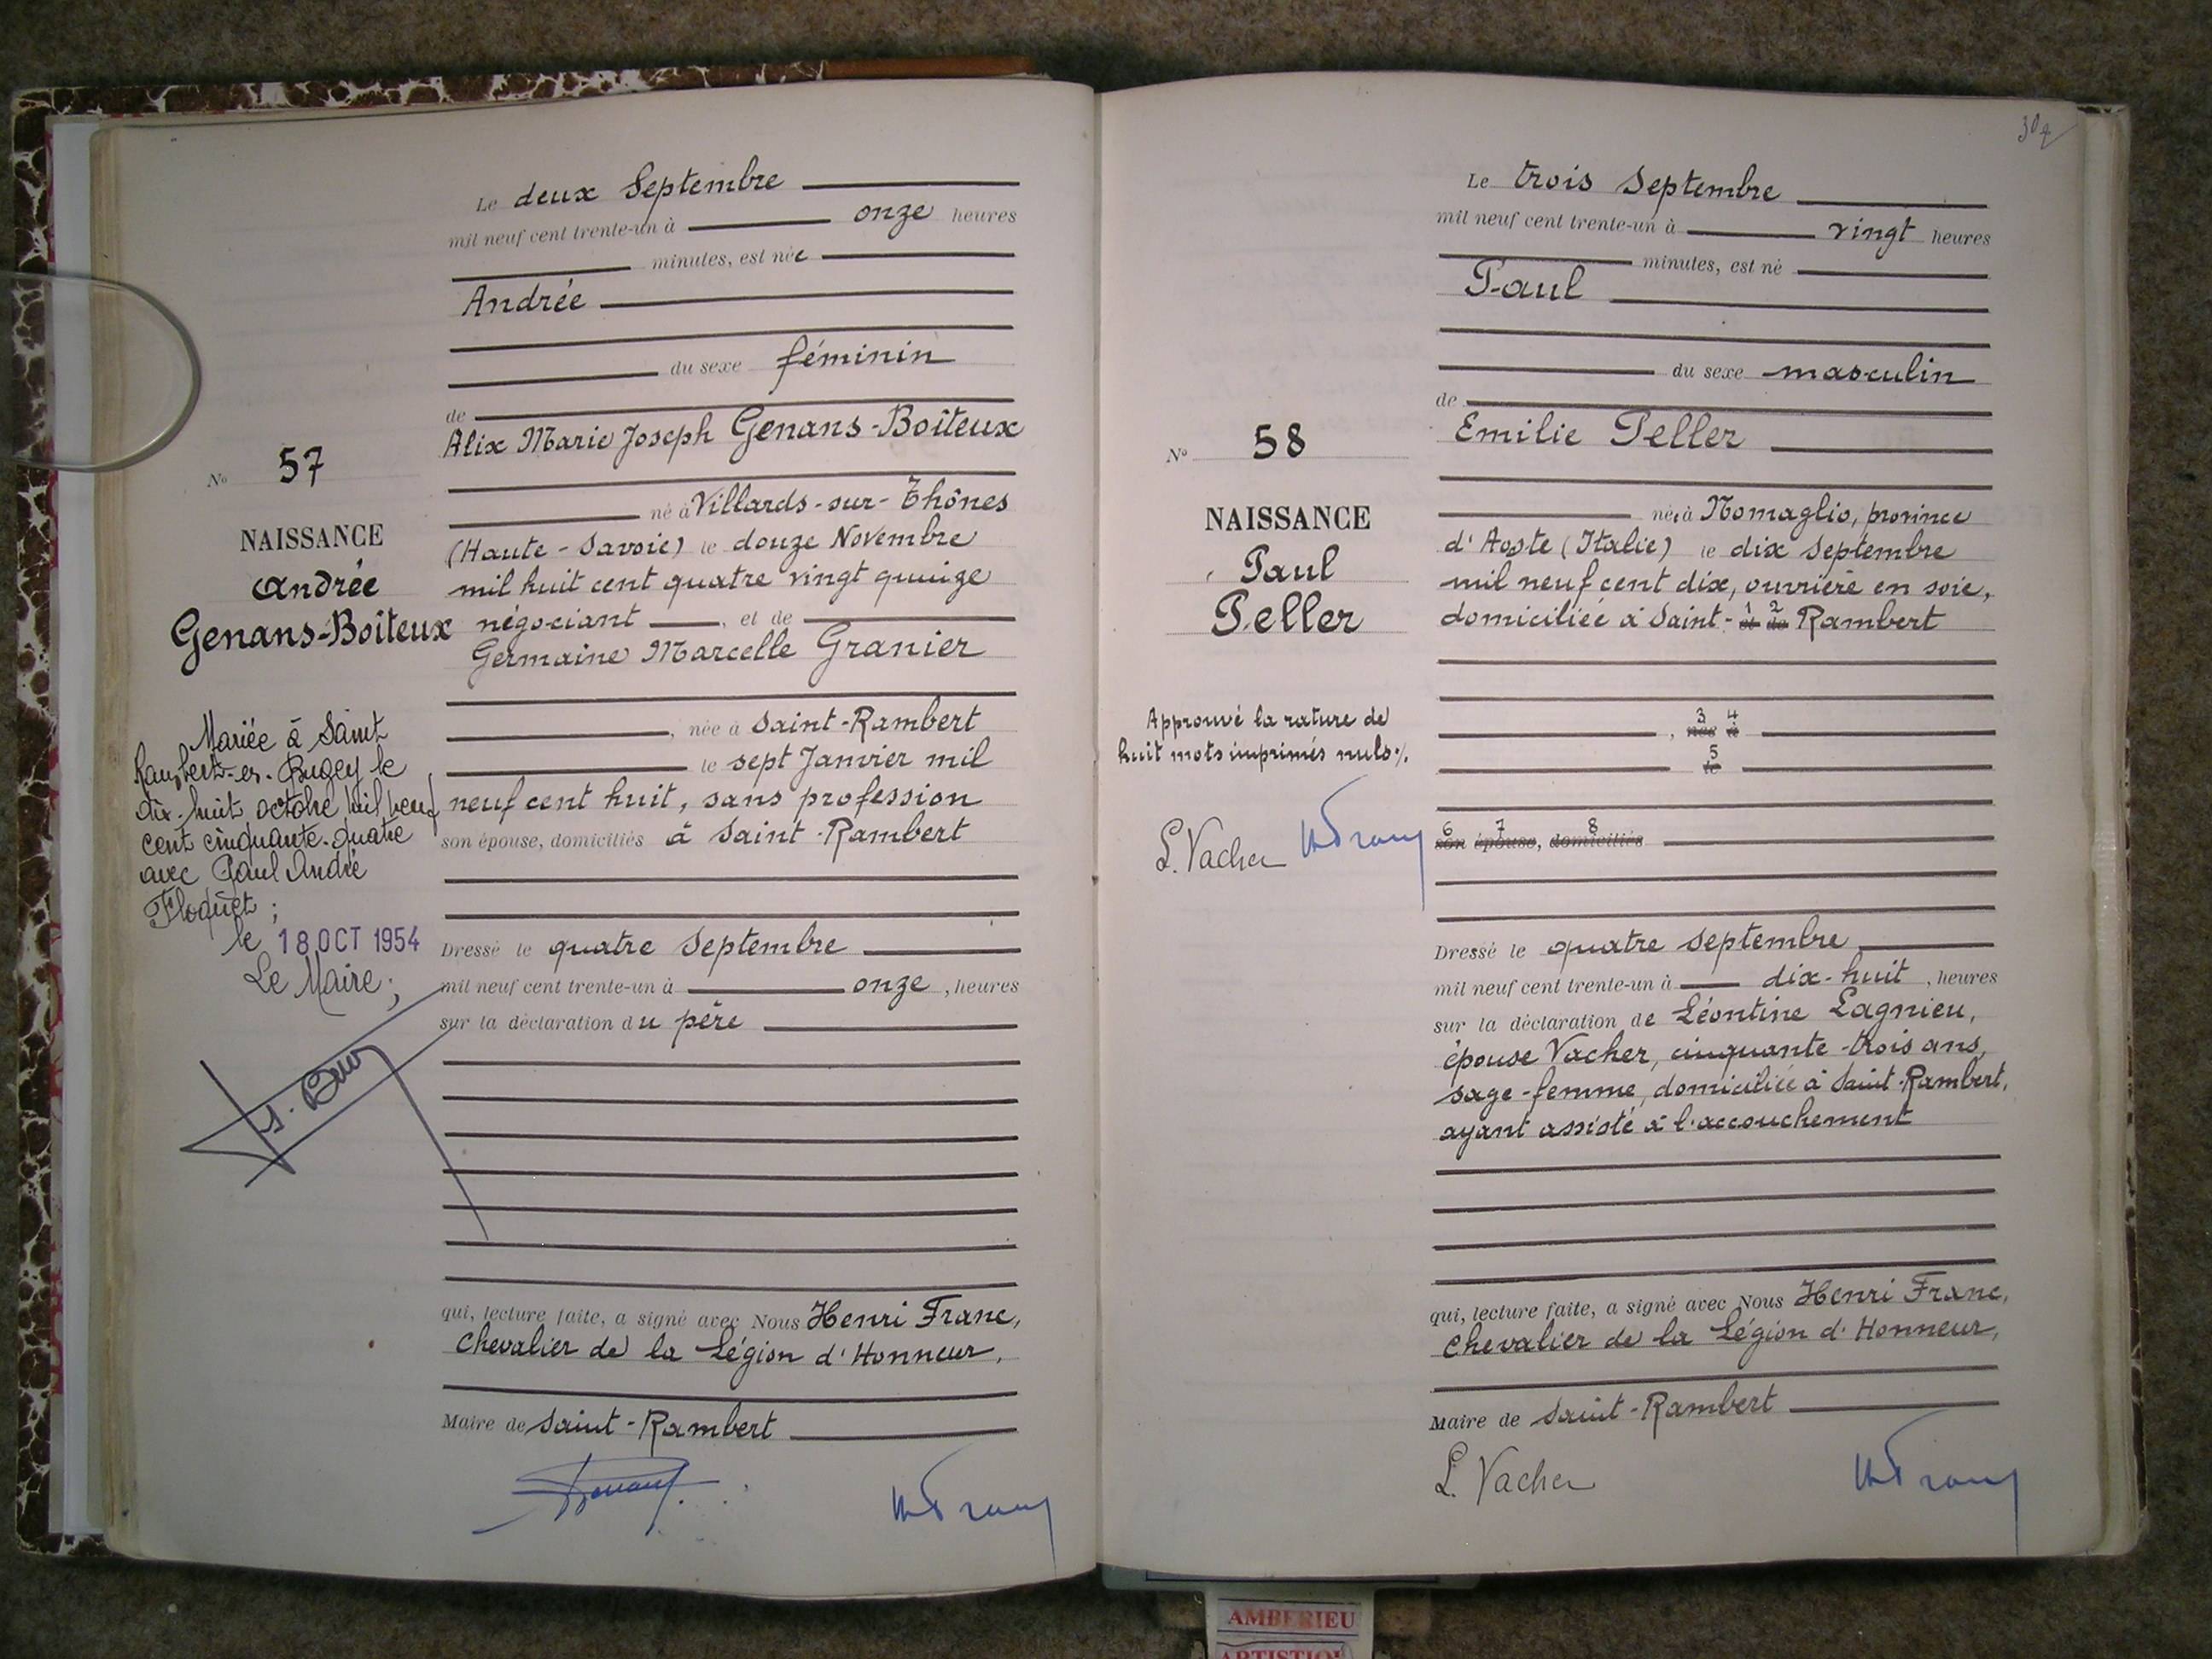 Le deux Septembre
mil neuf cent trente-un à onze heures
minutes, est née
Andrée
du sexe féminin
de
Alix Marie Joseph Genans-Boîteux
né à Villards-sur-Thônes
(Haute-Savoie) le douze Novembre
mil huit cent quatre vingt quinze
négociant, et de
Germaine Marcelle Granier
, née à Saint-Rambert
le sept Janvier mil
neuf cent huit, sans profession
son épouse, domiciliés à Saint-Rambert
Dressé le quatre Septembre
mil neuf cent trente-un à onze, heures
sur la déclaration du père
qui, lecture faite, a signé avec Nous Henri Franc,
Chevalier de la Légion d'Honneur,
Maire de Saint-Rambert
No 57
NAISSANCE
Andrée
Genans-Boîteux
Mariée à Saint
Rambert-en-Bugey le
dix-huit octobre mil neuf
cent cinquante-quatre
avec Paul André
Floquet ;
le 18 OCT 1954
Le Maire ;
Le trois Septembre
mil neuf cent trente-un à vingt heures
minutes, est né
Paul
du sexe masculin
de
Emilie Peller
née à Nomaglio, province
d'Aoste (Italie) le dix Septembre
mil neuf cent dix, ouvrière en soie,
domiciliée à Saint- 1 et 2 de Rambert
, 3 née 4 à
5 le
6 son 7 épouse, 8 domiciliés
Dressé le quatre Septembre
mil neuf cent trente-un à dix-huit, heures
sur la déclaration de Léontine Lagnieu,
épouse Vacher, cinquante-trois ans,
sage-femme, domiciliée à Saint-Rambert,
ayant assisté à l'accouchement
qui, lecture faite, a signé avec Nous Henri Franc,
Chevalier de la Légion d'Honneur,
Maire de Saint-Rambert
L. Vacher
No 58
NAISSANCE
Paul
Peller
Approuvé la rature de
huit mots imprimés nuls ./.
L. Vacher
AMBERIEU